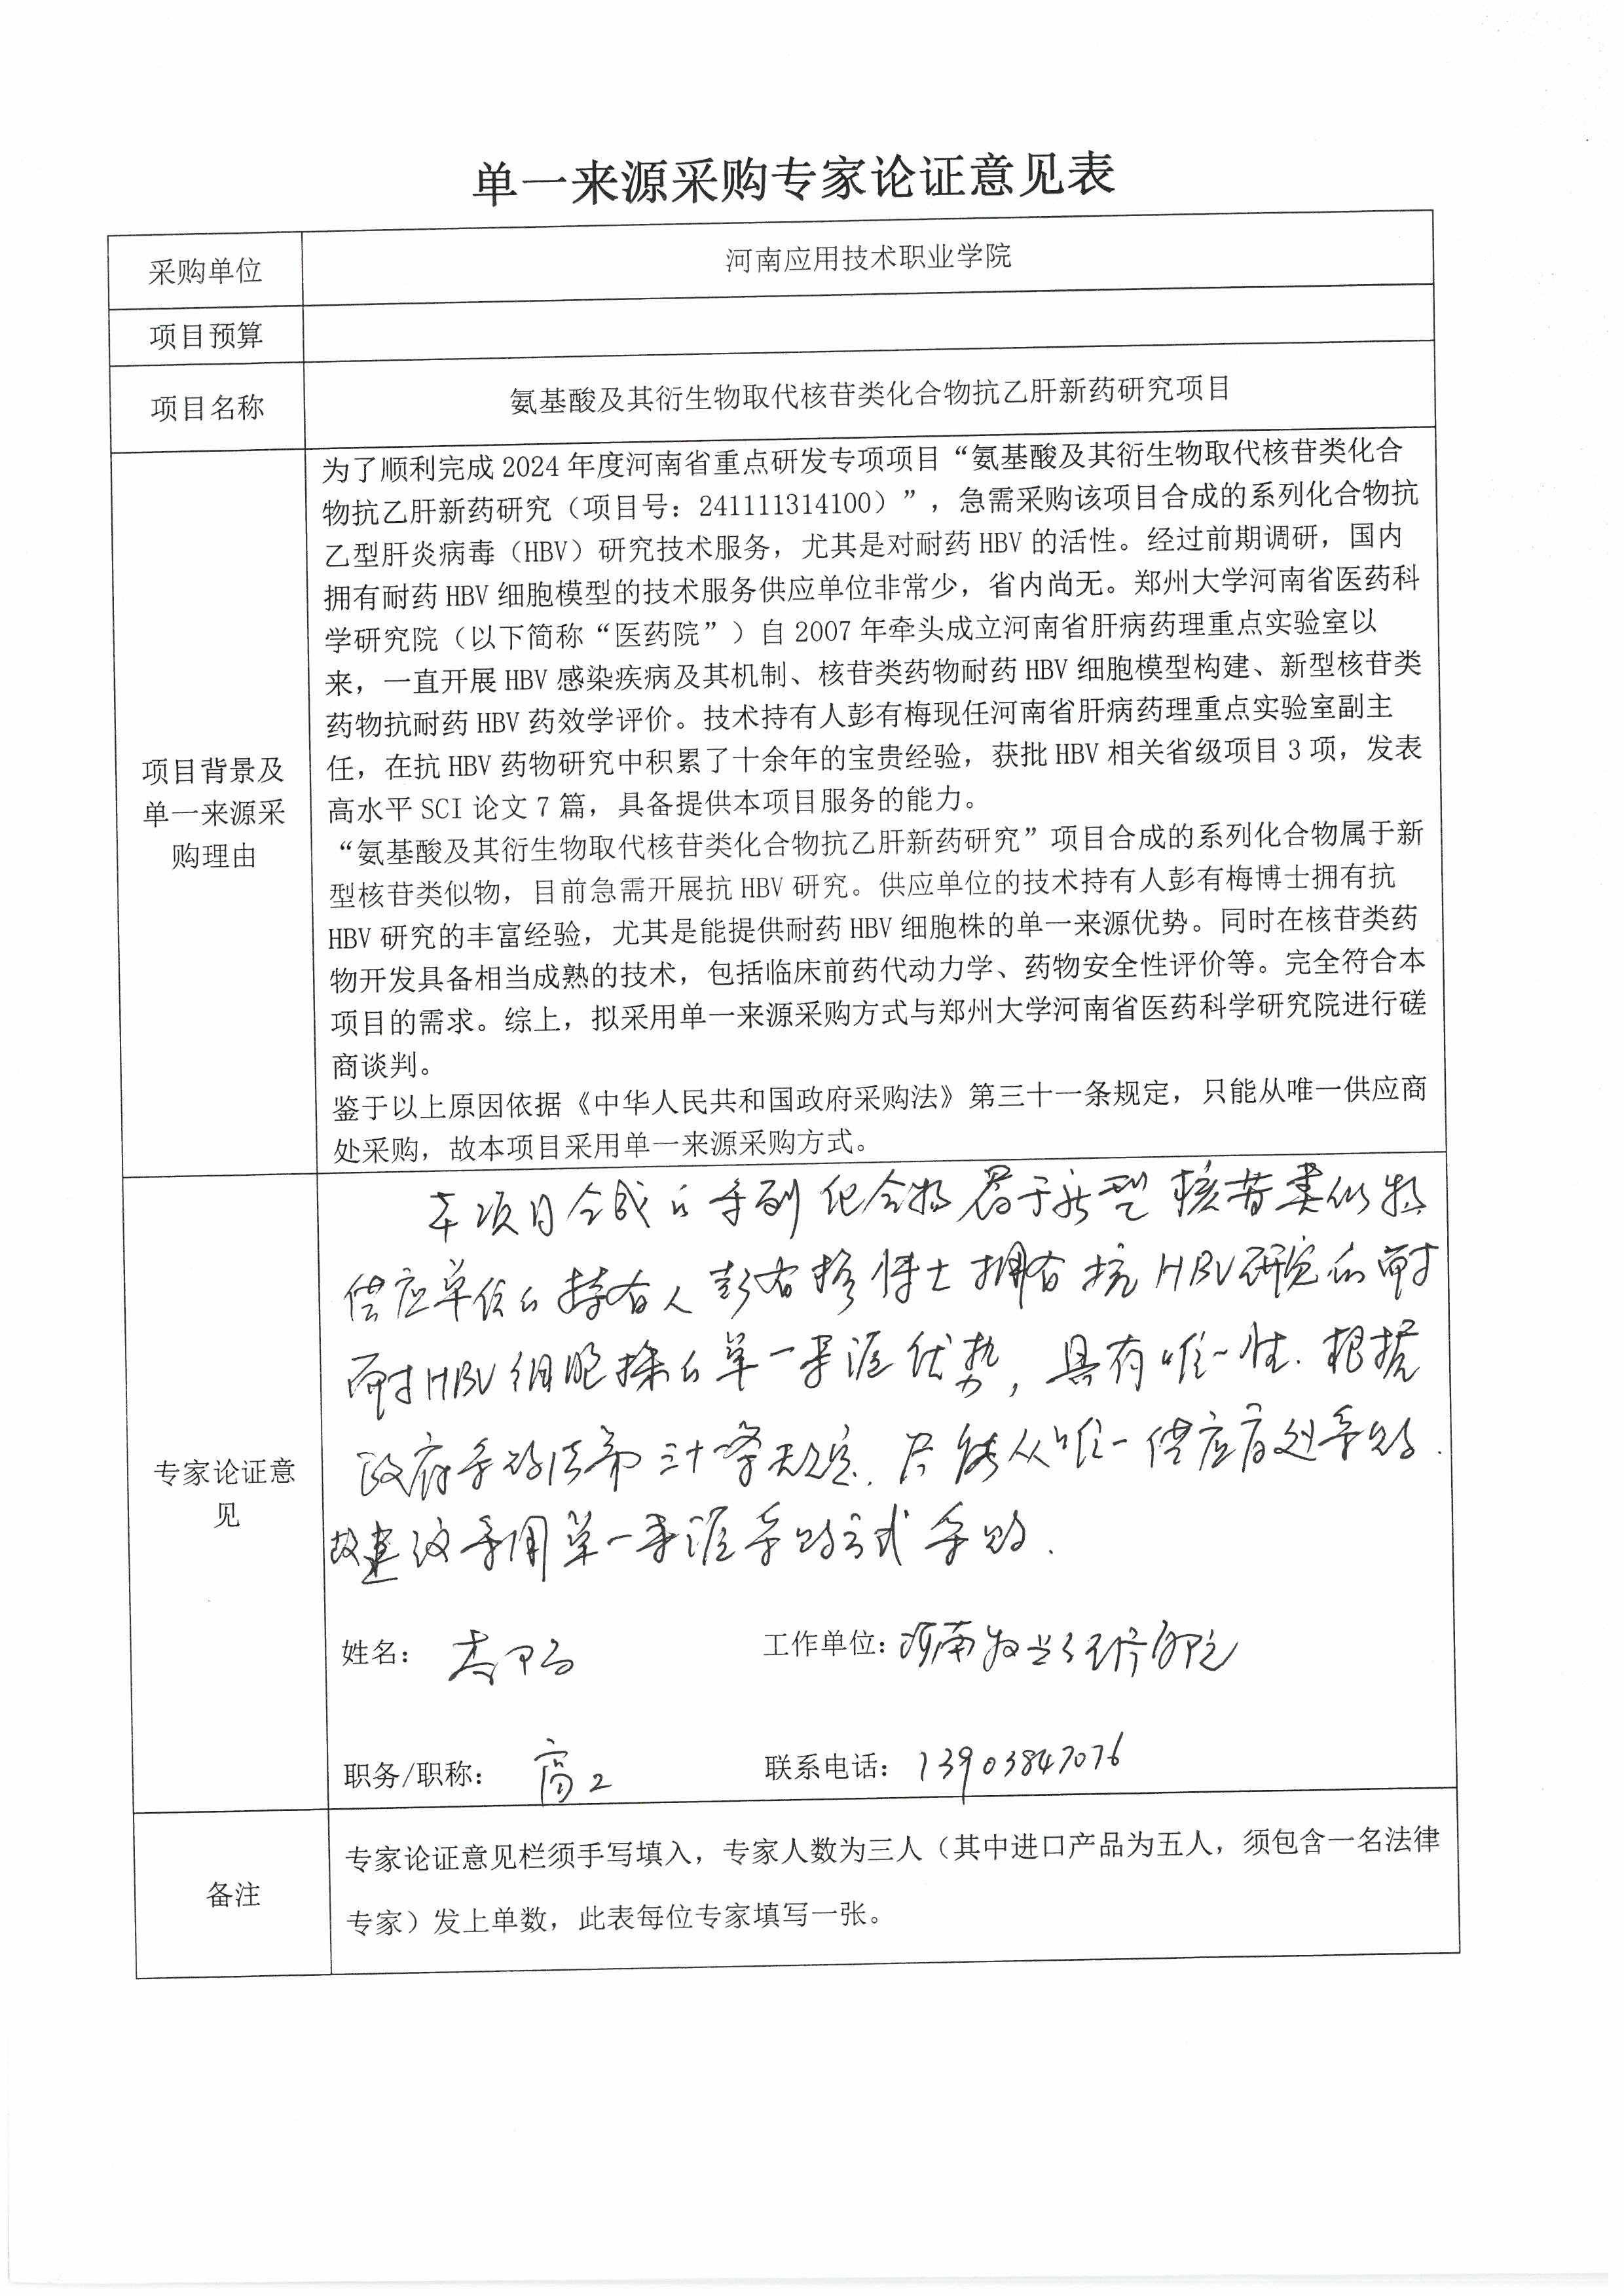 单一来源采购专家论证意见表
采购单位
河南应用技术职业学院
项目预算
项目名称
氨基酸及其衍生物取代核苷类化合物抗乙肝新药研究项目
项目背景及
单一来源采
购理由
为了顺利完成 2024 年度河南省重点研发专项项目“氨基酸及其衍生物取代核苷类化合
物抗乙肝新药研究（项目号：241111314100）”，急需采购该项目合成的系列化合物抗
乙型肝炎病毒（HBV）研究技术服务，尤其是对耐药 HBV 的活性。经过前期调研，国内
拥有耐药 HBV 细胞模型的技术服务供应单位非常少，省内尚无。郑州大学河南省医药科
学研究院（以下简称“医药院”）自 2007 年牵头成立河南省肝病药理重点实验室以
来，一直开展 HBV 感染疾病及其机制、核苷类药物耐药 HBV 细胞模型构建、新型核苷类
药物抗耐药 HBV 药效学评价。技术持有人彭有梅现任河南省肝病药理重点实验室副主
任，在抗 HBV 药物研究中积累了十余年的宝贵经验，获批 HBV 相关省级项目 3 项，发表
高水平 SCI 论文 7 篇，具备提供本项目服务的能力。
“氨基酸及其衍生物取代核苷类化合物抗乙肝新药研究”项目合成的系列化合物属于新
型核苷类似物，目前急需开展抗 HBV 研究。供应单位的技术持有人彭有梅博士拥有抗
HBV 研究的丰富经验，尤其是能提供耐药 HBV 细胞株的单一来源优势。同时在核苷类药
物开发具备相当成熟的技术，包括临床前药代动力学、药物安全性评价等。完全符合本
项目的需求。综上，拟采用单一来源采购方式与郑州大学河南省医药科学研究院进行磋
商谈判。
鉴于以上原因依据《中华人民共和国政府采购法》第三十一条规定，只能从唯一供应商
处采购，故本项目采用单一来源采购方式。
专家论证意
见
本项目合成的系列化合物属于新型核苷类似物
供应单位的持有人彭有梅博士拥有抗HBV研究的耐
耐HBV细胞株的单一来源优势，具有唯一性.根据
政府采购法第三十一条规定.只能从唯一供应商处采购.
故建议采用单一来源采购方式采购.
姓名：
工作单位：河南牧业经济学院
职务/职称：高工
联系电话：13903847076
备注
专家论证意见栏须手写填入，专家人数为三人（其中进口产品为五人，须包含一名法律
专家）发上单数，此表每位专家填写一张。